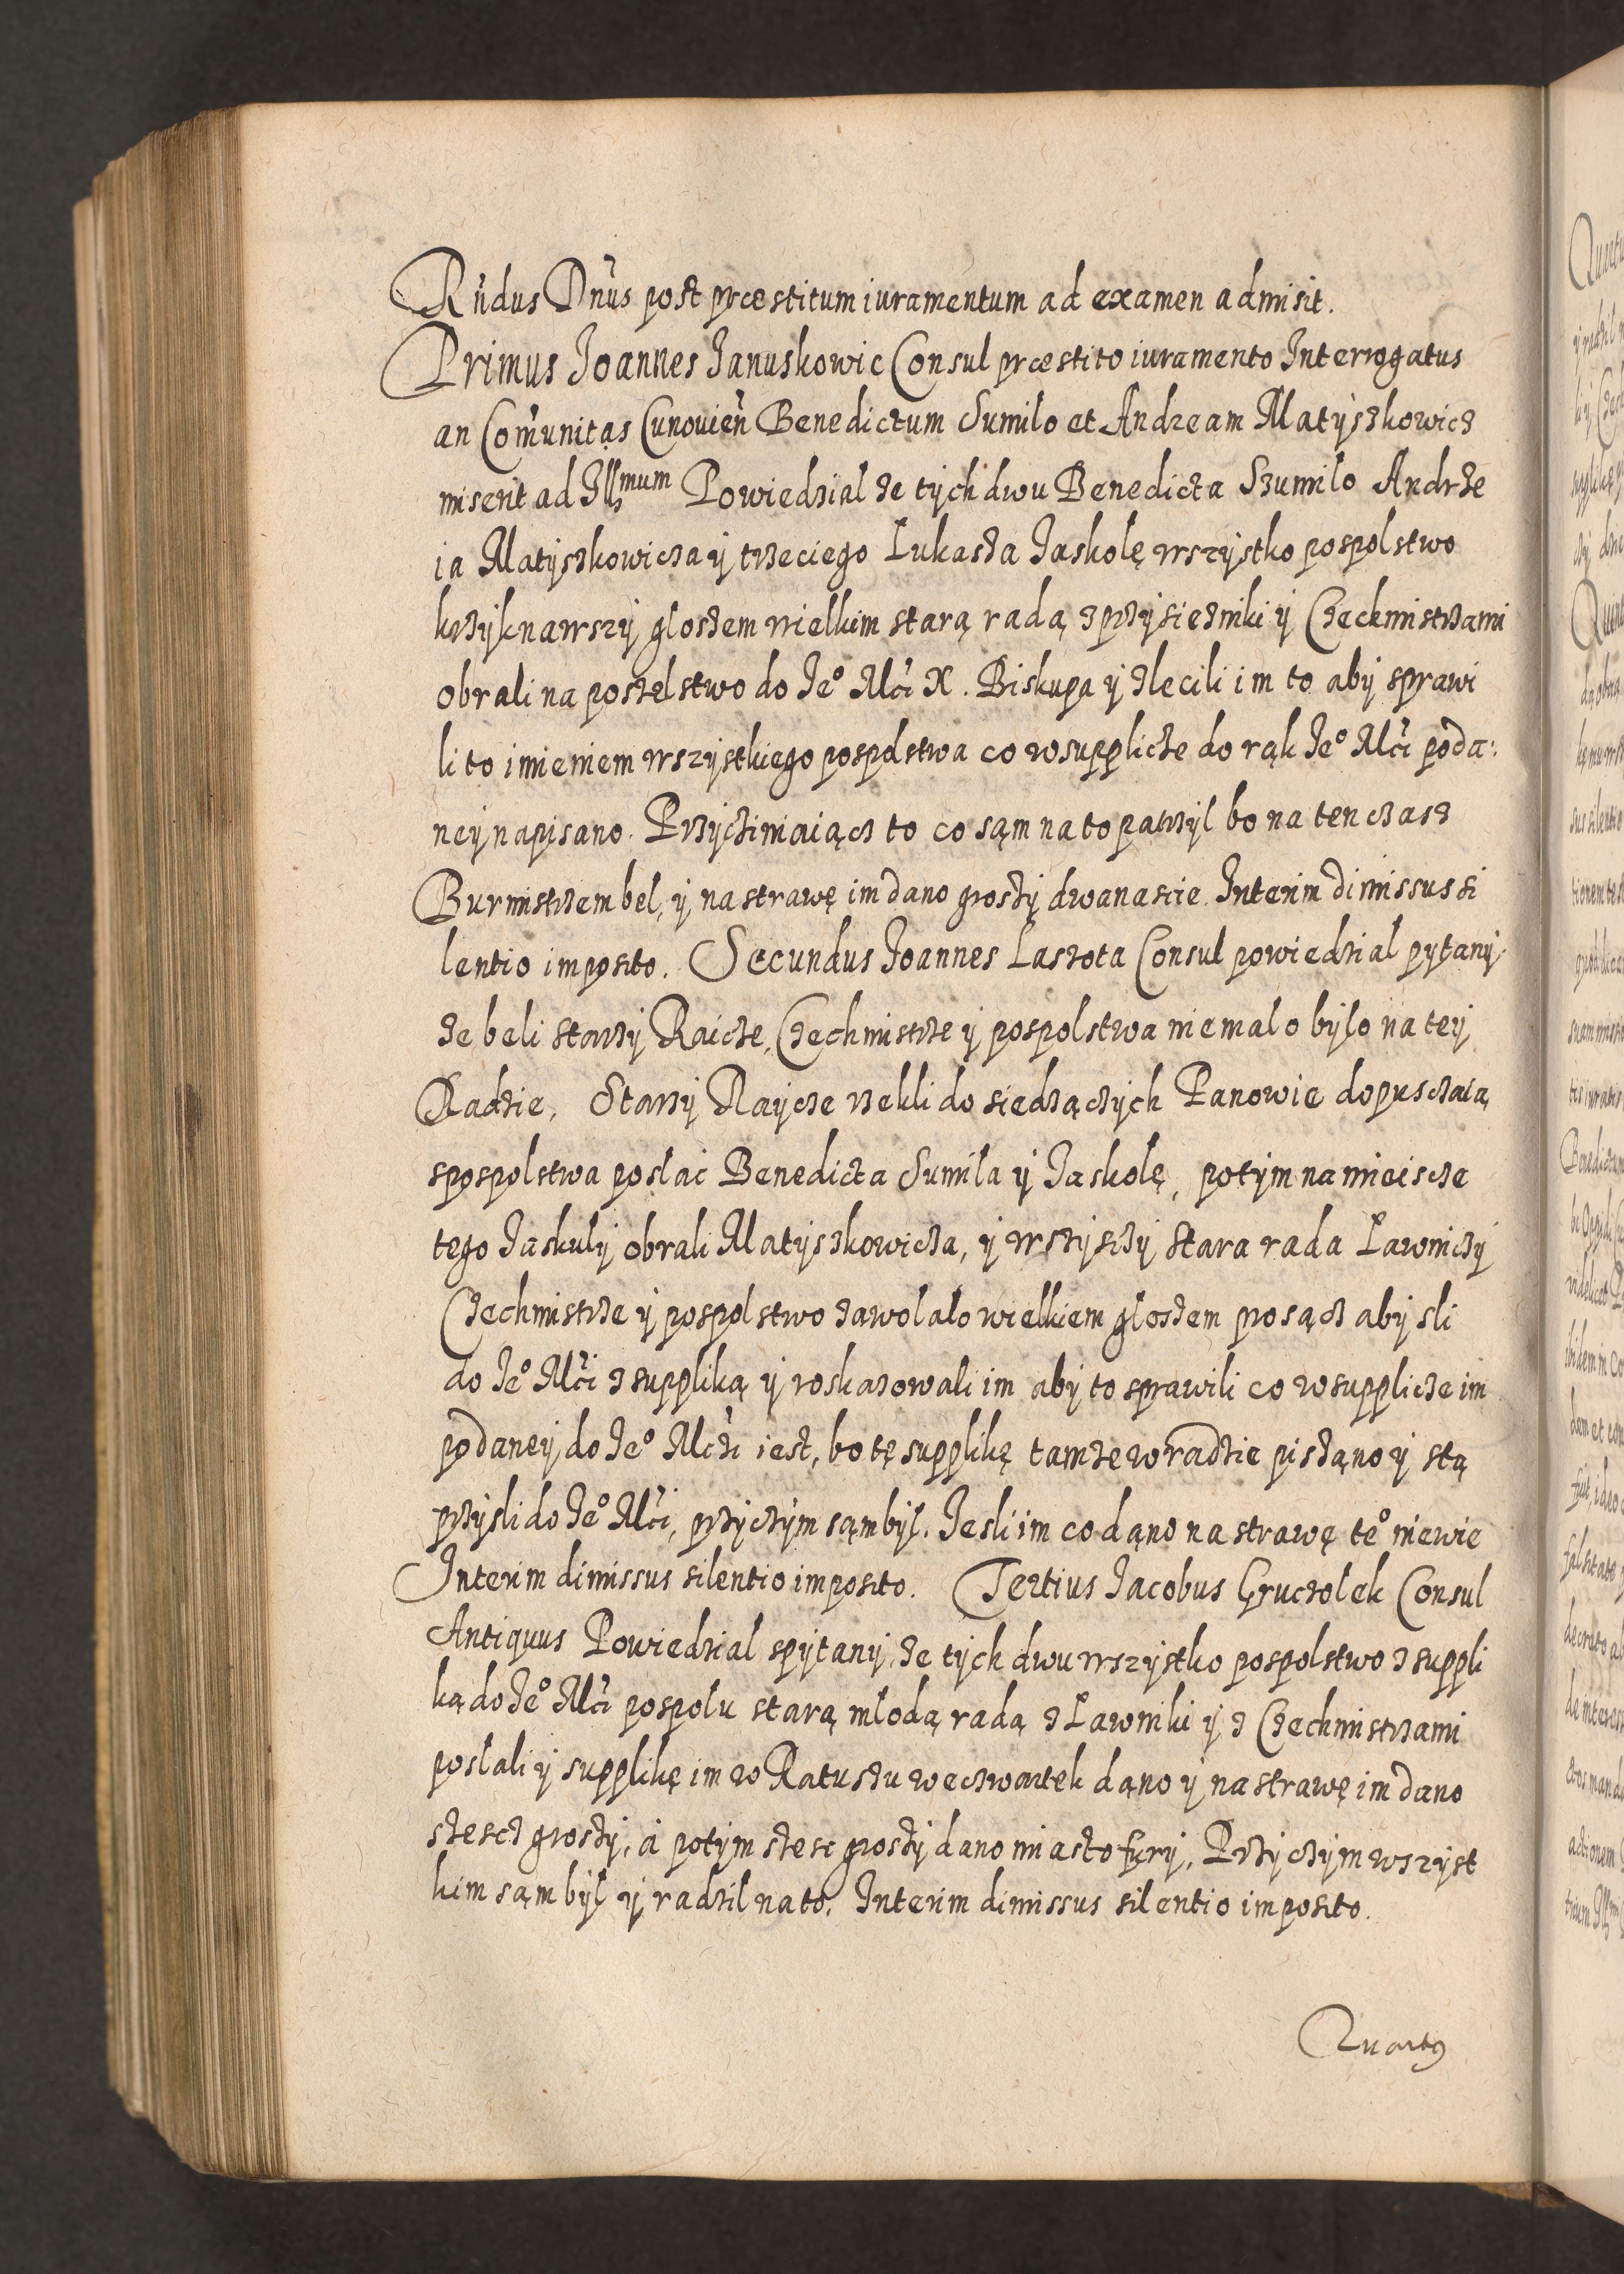 Rndus Dnus post præstitum iuramentum ad examen admisit.
Primus Joannes Januskowic Consul præstito iuramento Interrogatus
an Comunitas Cunouien Benedictum Sumilo et Andream Matyszkowicz
miserit ad Illmum Powiedzial ze tych dwu Benedicta Szumilo Andrze
ia Matyszkowicza y trzeciego Lukasza Jaskolę wszystko pospolstwo
krzyknawszy glosem wielkim starą radą z przysiezniki y Czechmistrzami
obrali na poselstwo do Jeo Mci X. Biskupa y zlecili im to aby sprawi
li to imieniem wszystkiego pospolstwa co w supplicze do rąk Jeo Mci poda:
ney napisano. Przyczimaiącz to co sąm na to patrzyl bo na ten czasz
Burmistrzem bel, y na strawę im dano groszy dwanascie. Interim dimissus si
lentio imposito. Secundus Joannes Laszota Consul powiedzial pytany
ze beli starzy Raicze, Czechmistrze y pospolstwa niemalo bylo na tey
Radzie, Starzy Raycze rzekli do siedzączych Panowie dopusczaią
spospolstwa poslac Benedicta Sumila y Jaskolę, potym na mieiscze
tego Jaskuly obrali Matyszkowicza, y wszysczy stara rada Lawniczy
Czechmistrze y pospolstwo zawolalo wielkiem glosem prosącz aby sli
do Jeo Mci z suppliką y roskazowali im aby to sprawili co w supplicze im
podaney do Jeo Mczi iest, bo tę supplikę tamze w radzie pisąno y stą
przysli do Jeo Mci, przyczym sąm byl. Jesli im co dąno na strawę teo niewie
Interim dimissus silentio imposito. Tertius Jacobus Gruczolek Consul
Antiquus Powiedzial spytany, ze tych dwu wszystko pospolstwo z suppli
ką do Jeo Mci pospolu starą mlodą radą z Lawniki y z Czechmistrzami
poslali y supplikę im w Ratuszu we czwartek dąno y na strawę im dano
szescz groszy, a potym szesc groszy dano miasto fury, Przyczym wszyst
kim sąm byl y radzil na to. Interim dimissus silentio imposito.
Quartus